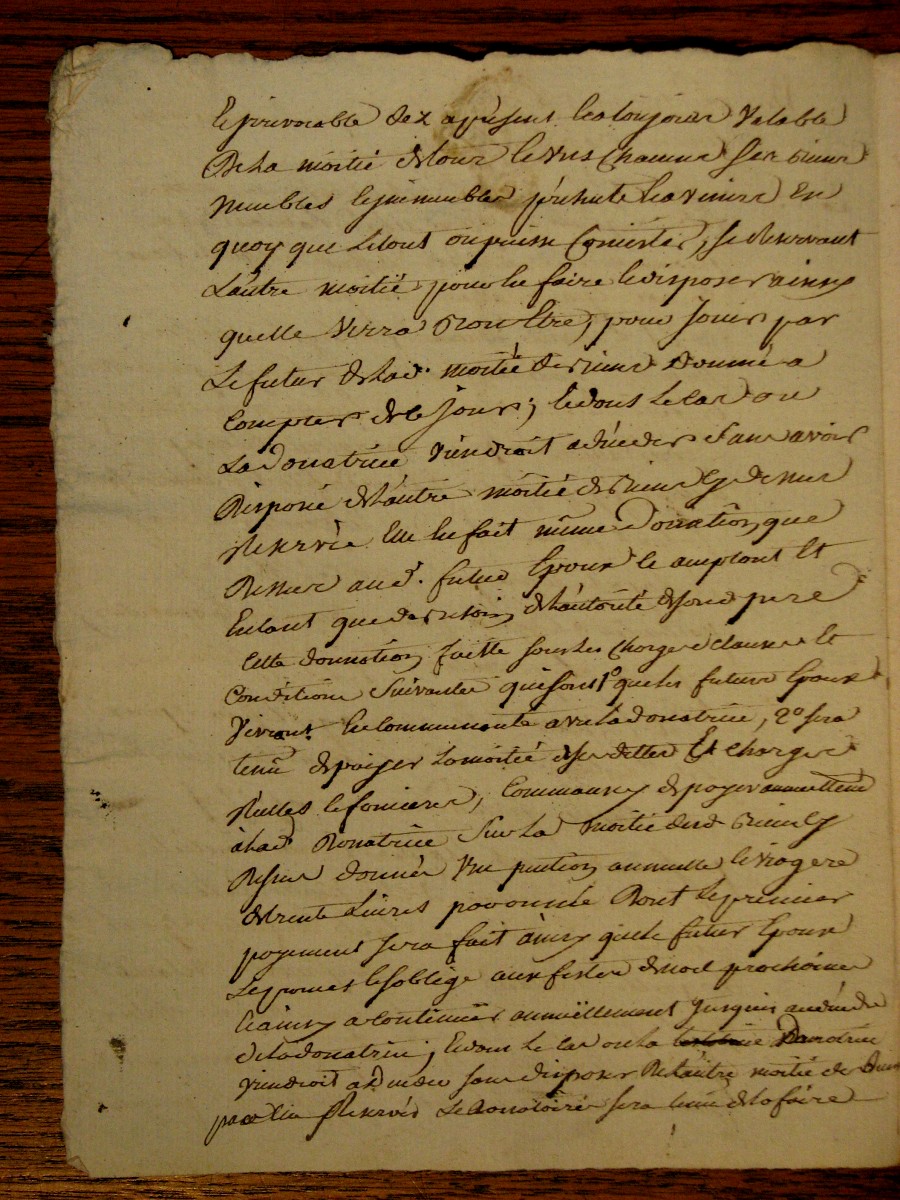 irrevocable dez apresent et a toujours valable
de la moitié de tous et uns chacuns ses biens
meubles et immeubles présents et avenirs en
quoy que le tout en puisse consister, se reservant
L'autre moitié pour en faire et disposer ainsy
quelle verra bon etre, pour jouir par
Le futur de lad. moitié de biens donnée a
compter de ce jour; et dans le cas ou
La donatrice viendroit a déceder sans avoir
Disposé de l'autre moitié de biens cy dessus
Reservée elle en fait même donation que
dessus aud. futur epoux ce acceptant et
cette donnation faitte sous les charges clauses et
conditions suivantes qui sont 1° que les futurs epoux
vivront en communauté avec la donatrice, 2° sera
tenu de payer la moitié de ses dettes et charges
réelles et foncieres, de payer annuellement
à lad. Donatrice sur la moitié desd. biens cy
dessus donnés une pention annuelle et viagere
de trente Livres par année dont le premier
payement sera fait ainsy que le futur epoux
Le promet et s'oblige aux festes de noel prochaines
et ainsy a continuer annuellement jusquau décès
de la donatrice; et dans le cas ou la donatrice
viendroit a déceder sans disposer de l'autre moitié de biens
par elle Reservés Le donatoire sera tenu de la faire